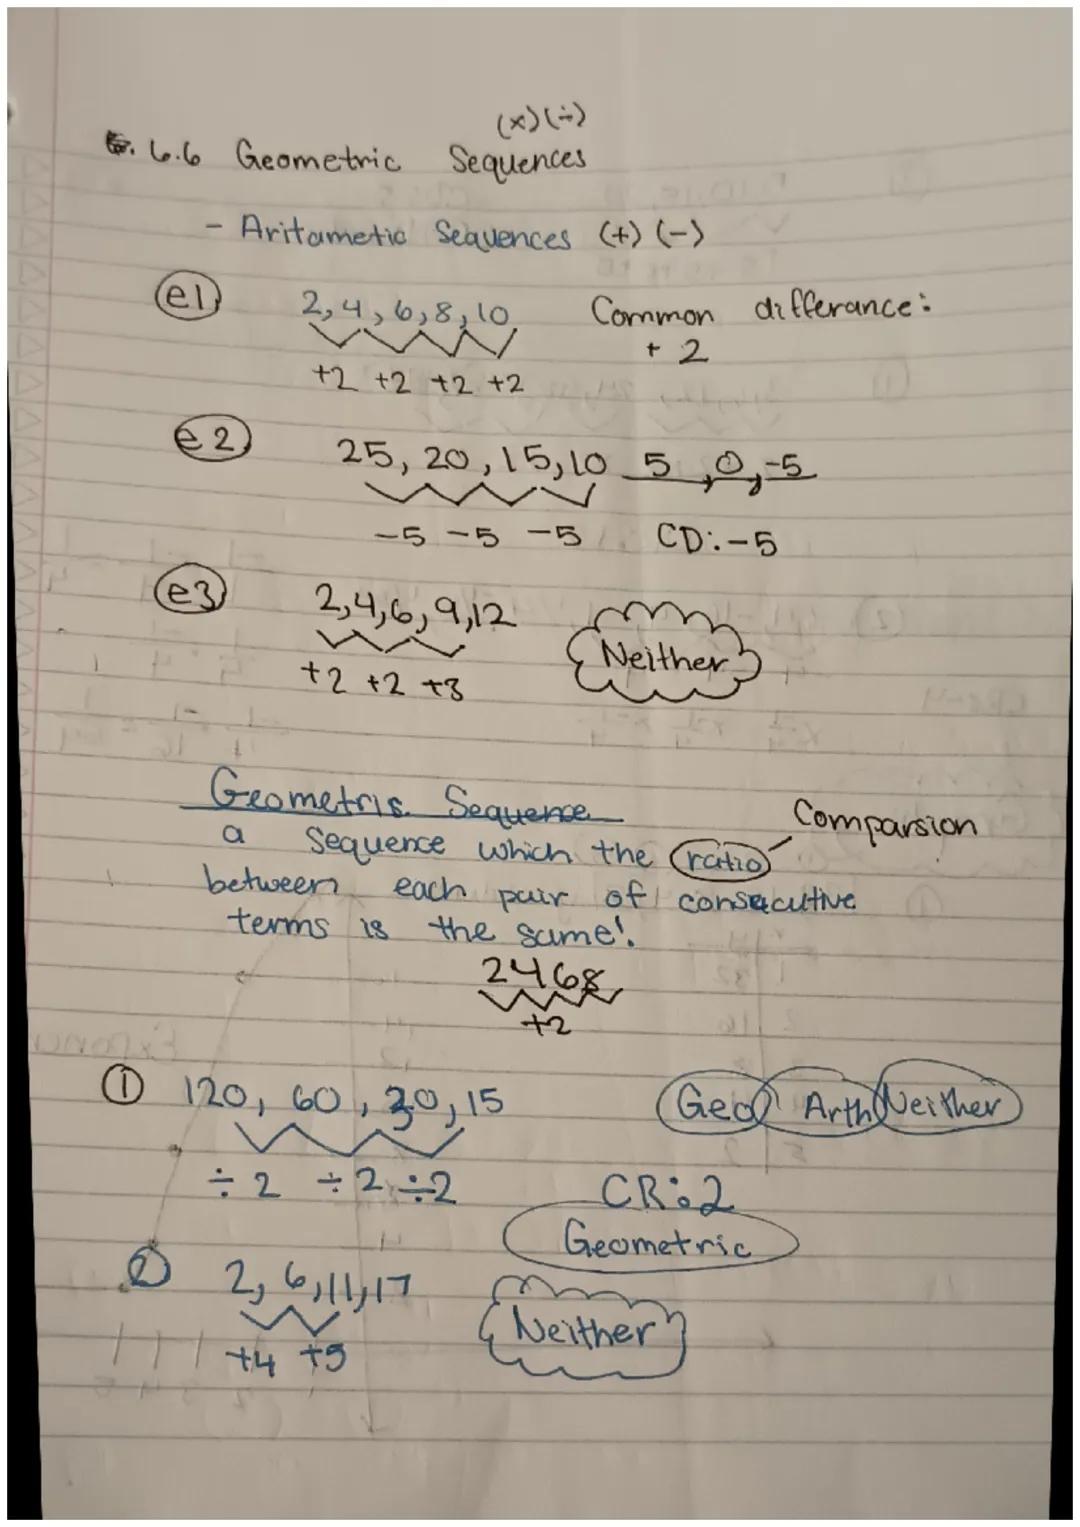 (×)(÷)
6.6 Geometric Sequences
- Aritametic Sequences (+) (-)
e1 2, 4, 6, 8, 10 Common differance:
+2 +2 +2 +2 + 2
e2 25, 20, 15, 10 5, 0, -5
-5 -5 -5 CD: -5
e3 2, 4, 6, 9, 12 Neither
+2 +2 +3
Geometris Sequence
Comparsion
a sequence which the ratio
between each pair of consecutive
terms is the same!
2 4 6 8
+2
① 120, 60, 30, 15 Geo Arth Neither
÷2 ÷2 ÷2 CR: 2
Geometric
② 2, 6, 11, 17 Neither
+4 +5